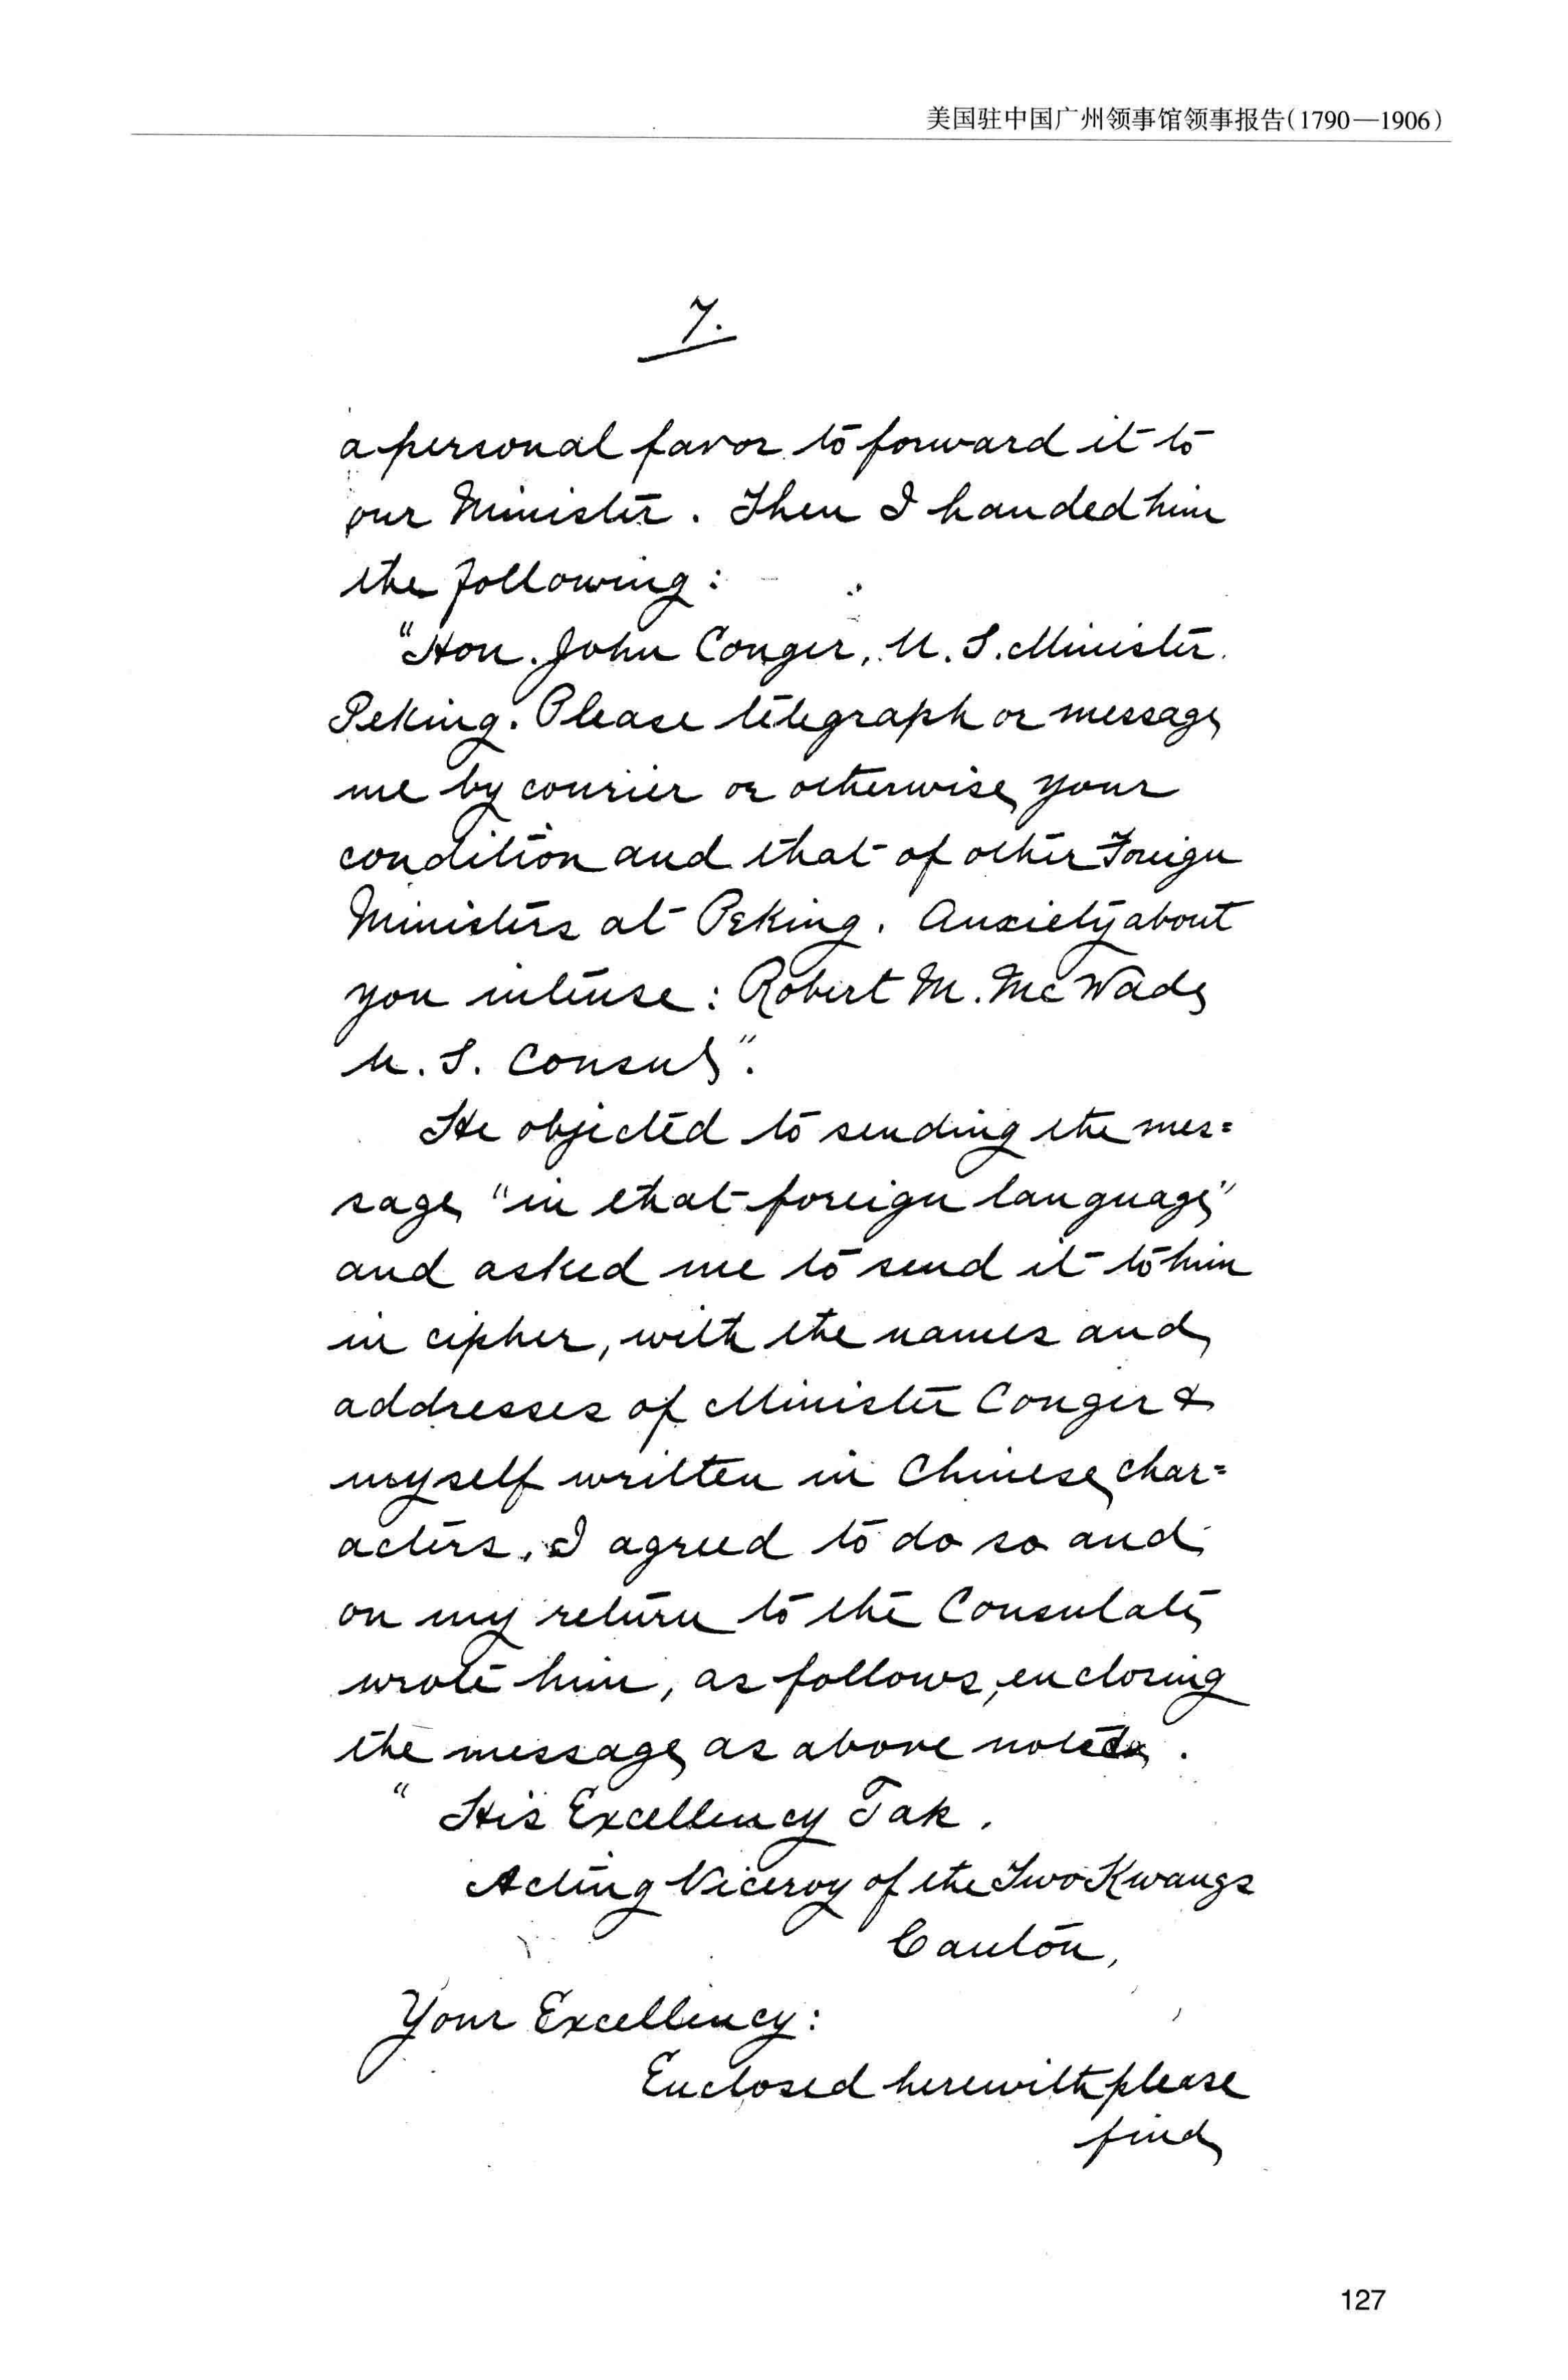 美国驻中国广州领事馆领事报告(1790—1906)
7.
a personal favor to forward it to
our Minister. Then I handed him
the following:
"Hon. John Conger, U. S. Minister.
Peking. Please telegraph or message
me by courier or otherwise your
condition and that of other Foreign
Ministers at Peking. Anxiety about
you intense: Robert M. McWade
U. S. Consul".
He objected to sending the mes=
sage "in that foreign language"
and asked me to send it to him
in cipher, with the names and
addresses of Minister Conger &
myself written in Chinese char=
acters. I agreed to do so and
on my return to the Consulate
wrote him, as follows, enclosing
the message as above noted.
" His Excellency Tak.
Acting Viceroy of the Two Kwangs
Canton,
Your Excellency:
Enclosed herewith please
find
127